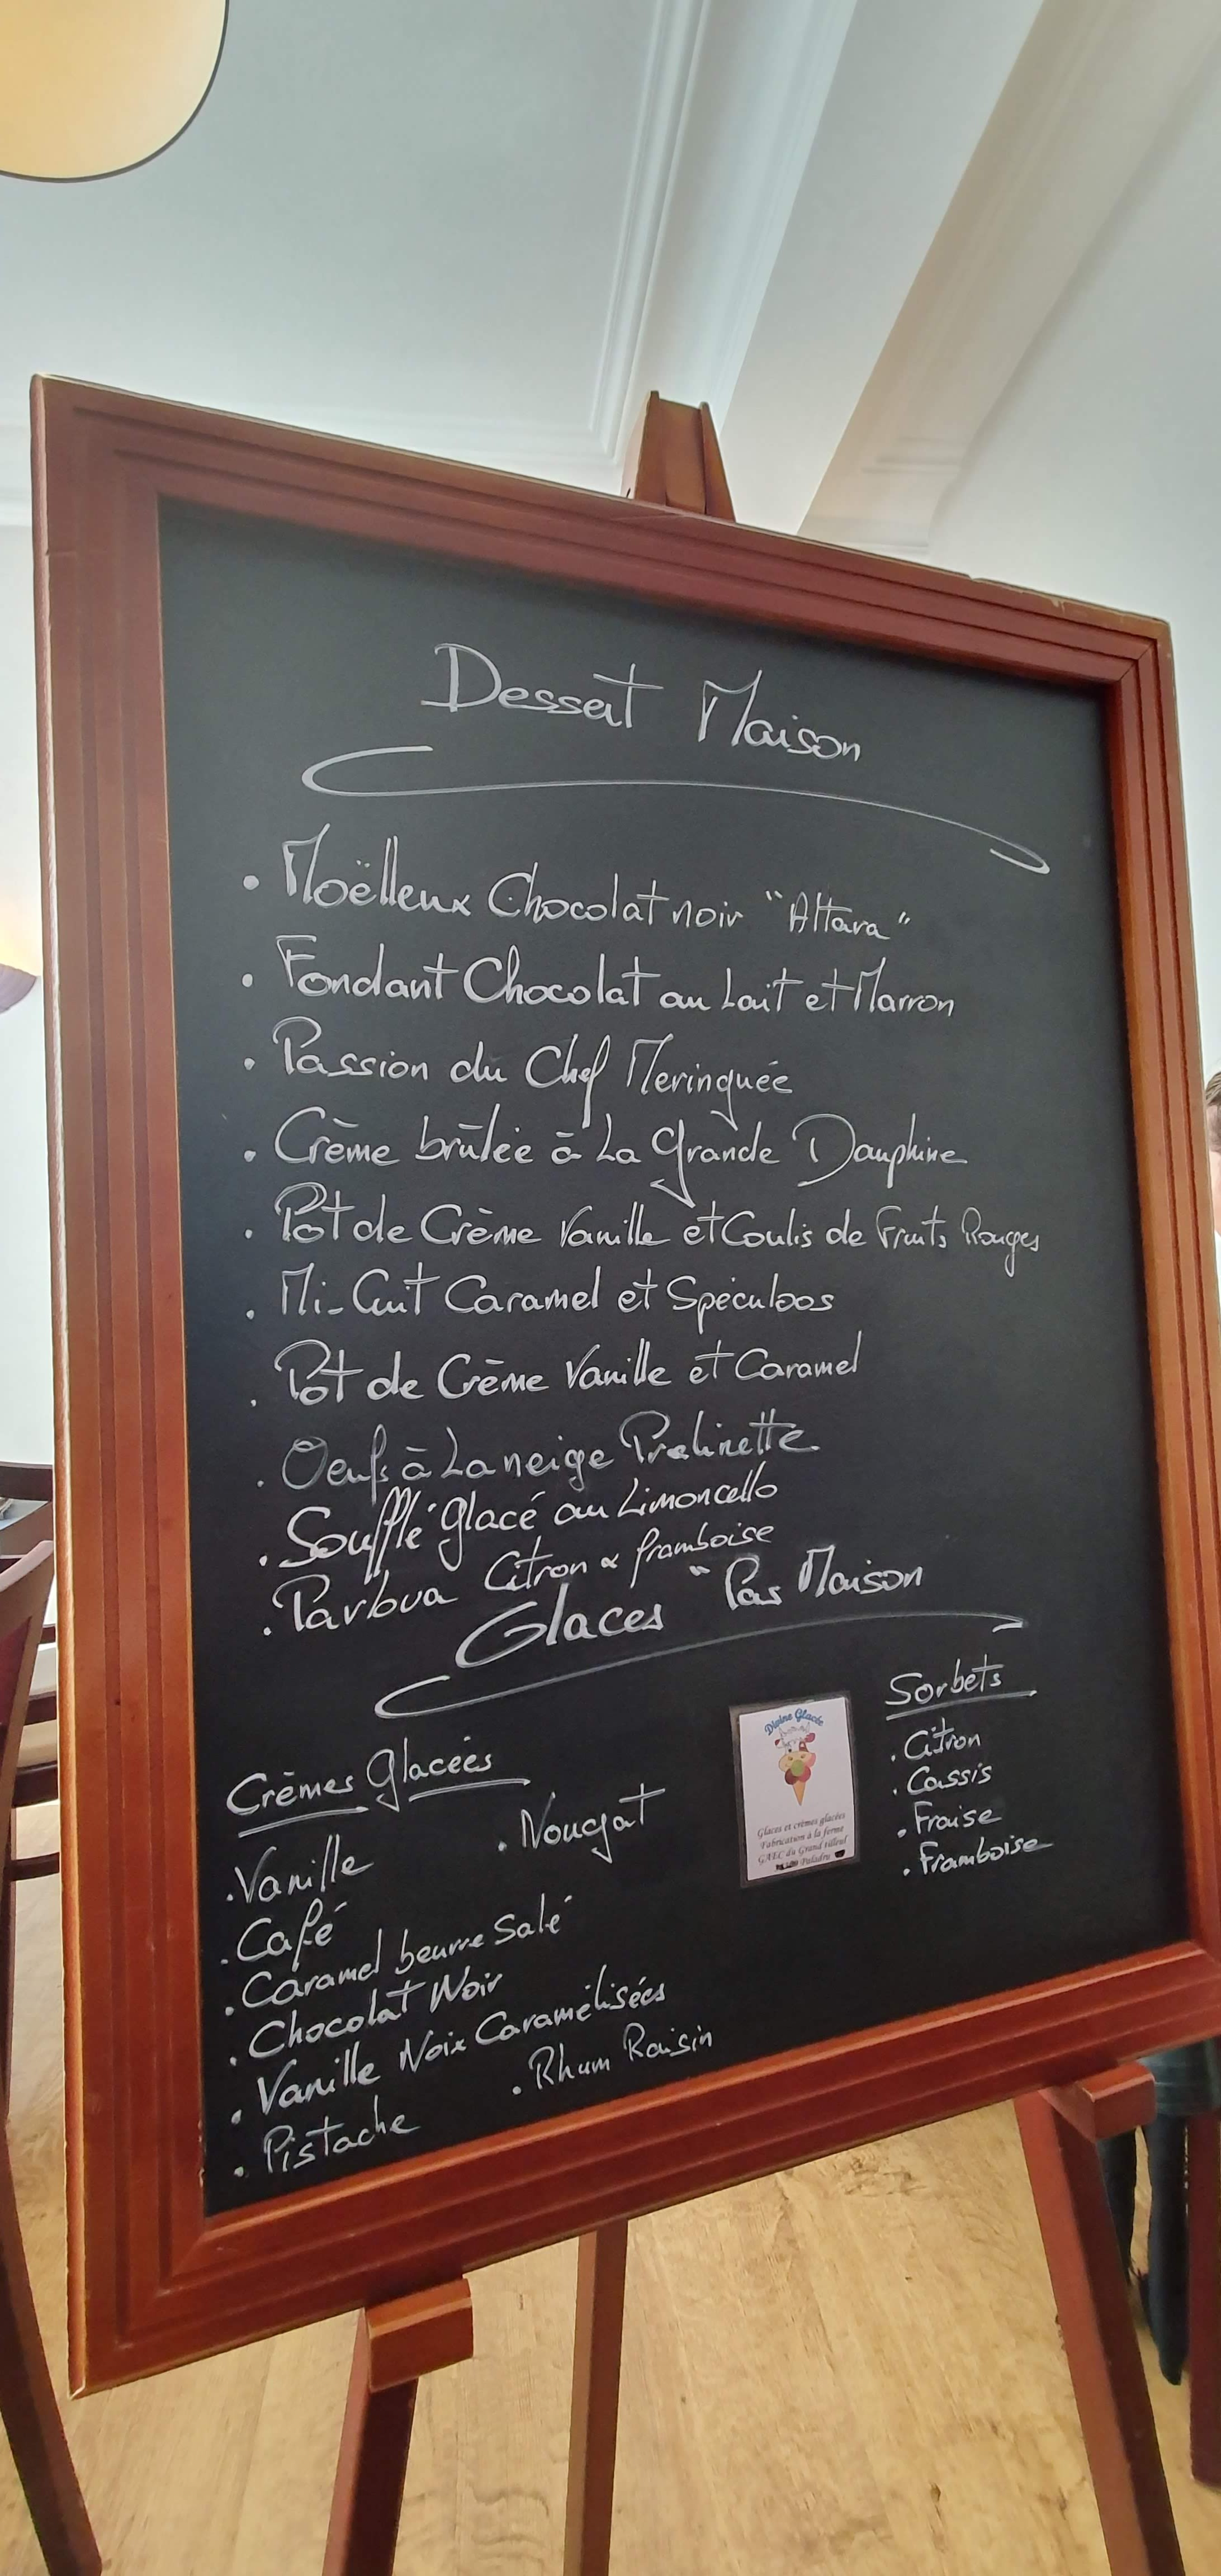 Dessert Maison
. Moëlleux Chocolat noir "Altara"
. Fondant Chocolat au Lait et Marron
. Passion du Chef Meringuée
. Crème brûlée à La grande Dauphine
. Pot de Crème Vanille et Coulis de Fruits Rouges
. Mi-Cuit Caramel et Spéculoos
. Pot de Crème Vanille et Caramel
. Oeufs à La neige Pralinette
. Soufflé glacé au Limoncello
. Pavlova Citron & framboise
Glaces "Pas Maison
Crèmes glacées
. Vanille
. Nougat
. Café
. Caramel beurre Salé
. Chocolat Noir
. Vanille Noix Caramélisées
. Pistache
. Rhum Raisin
Divine Glacée
Glaces et crèmes glacées
Fabrication à la ferme
GAEC du Grand tilleul
Paladru
Sorbets
. Citron
. Cassis
. Fraise
. Framboise